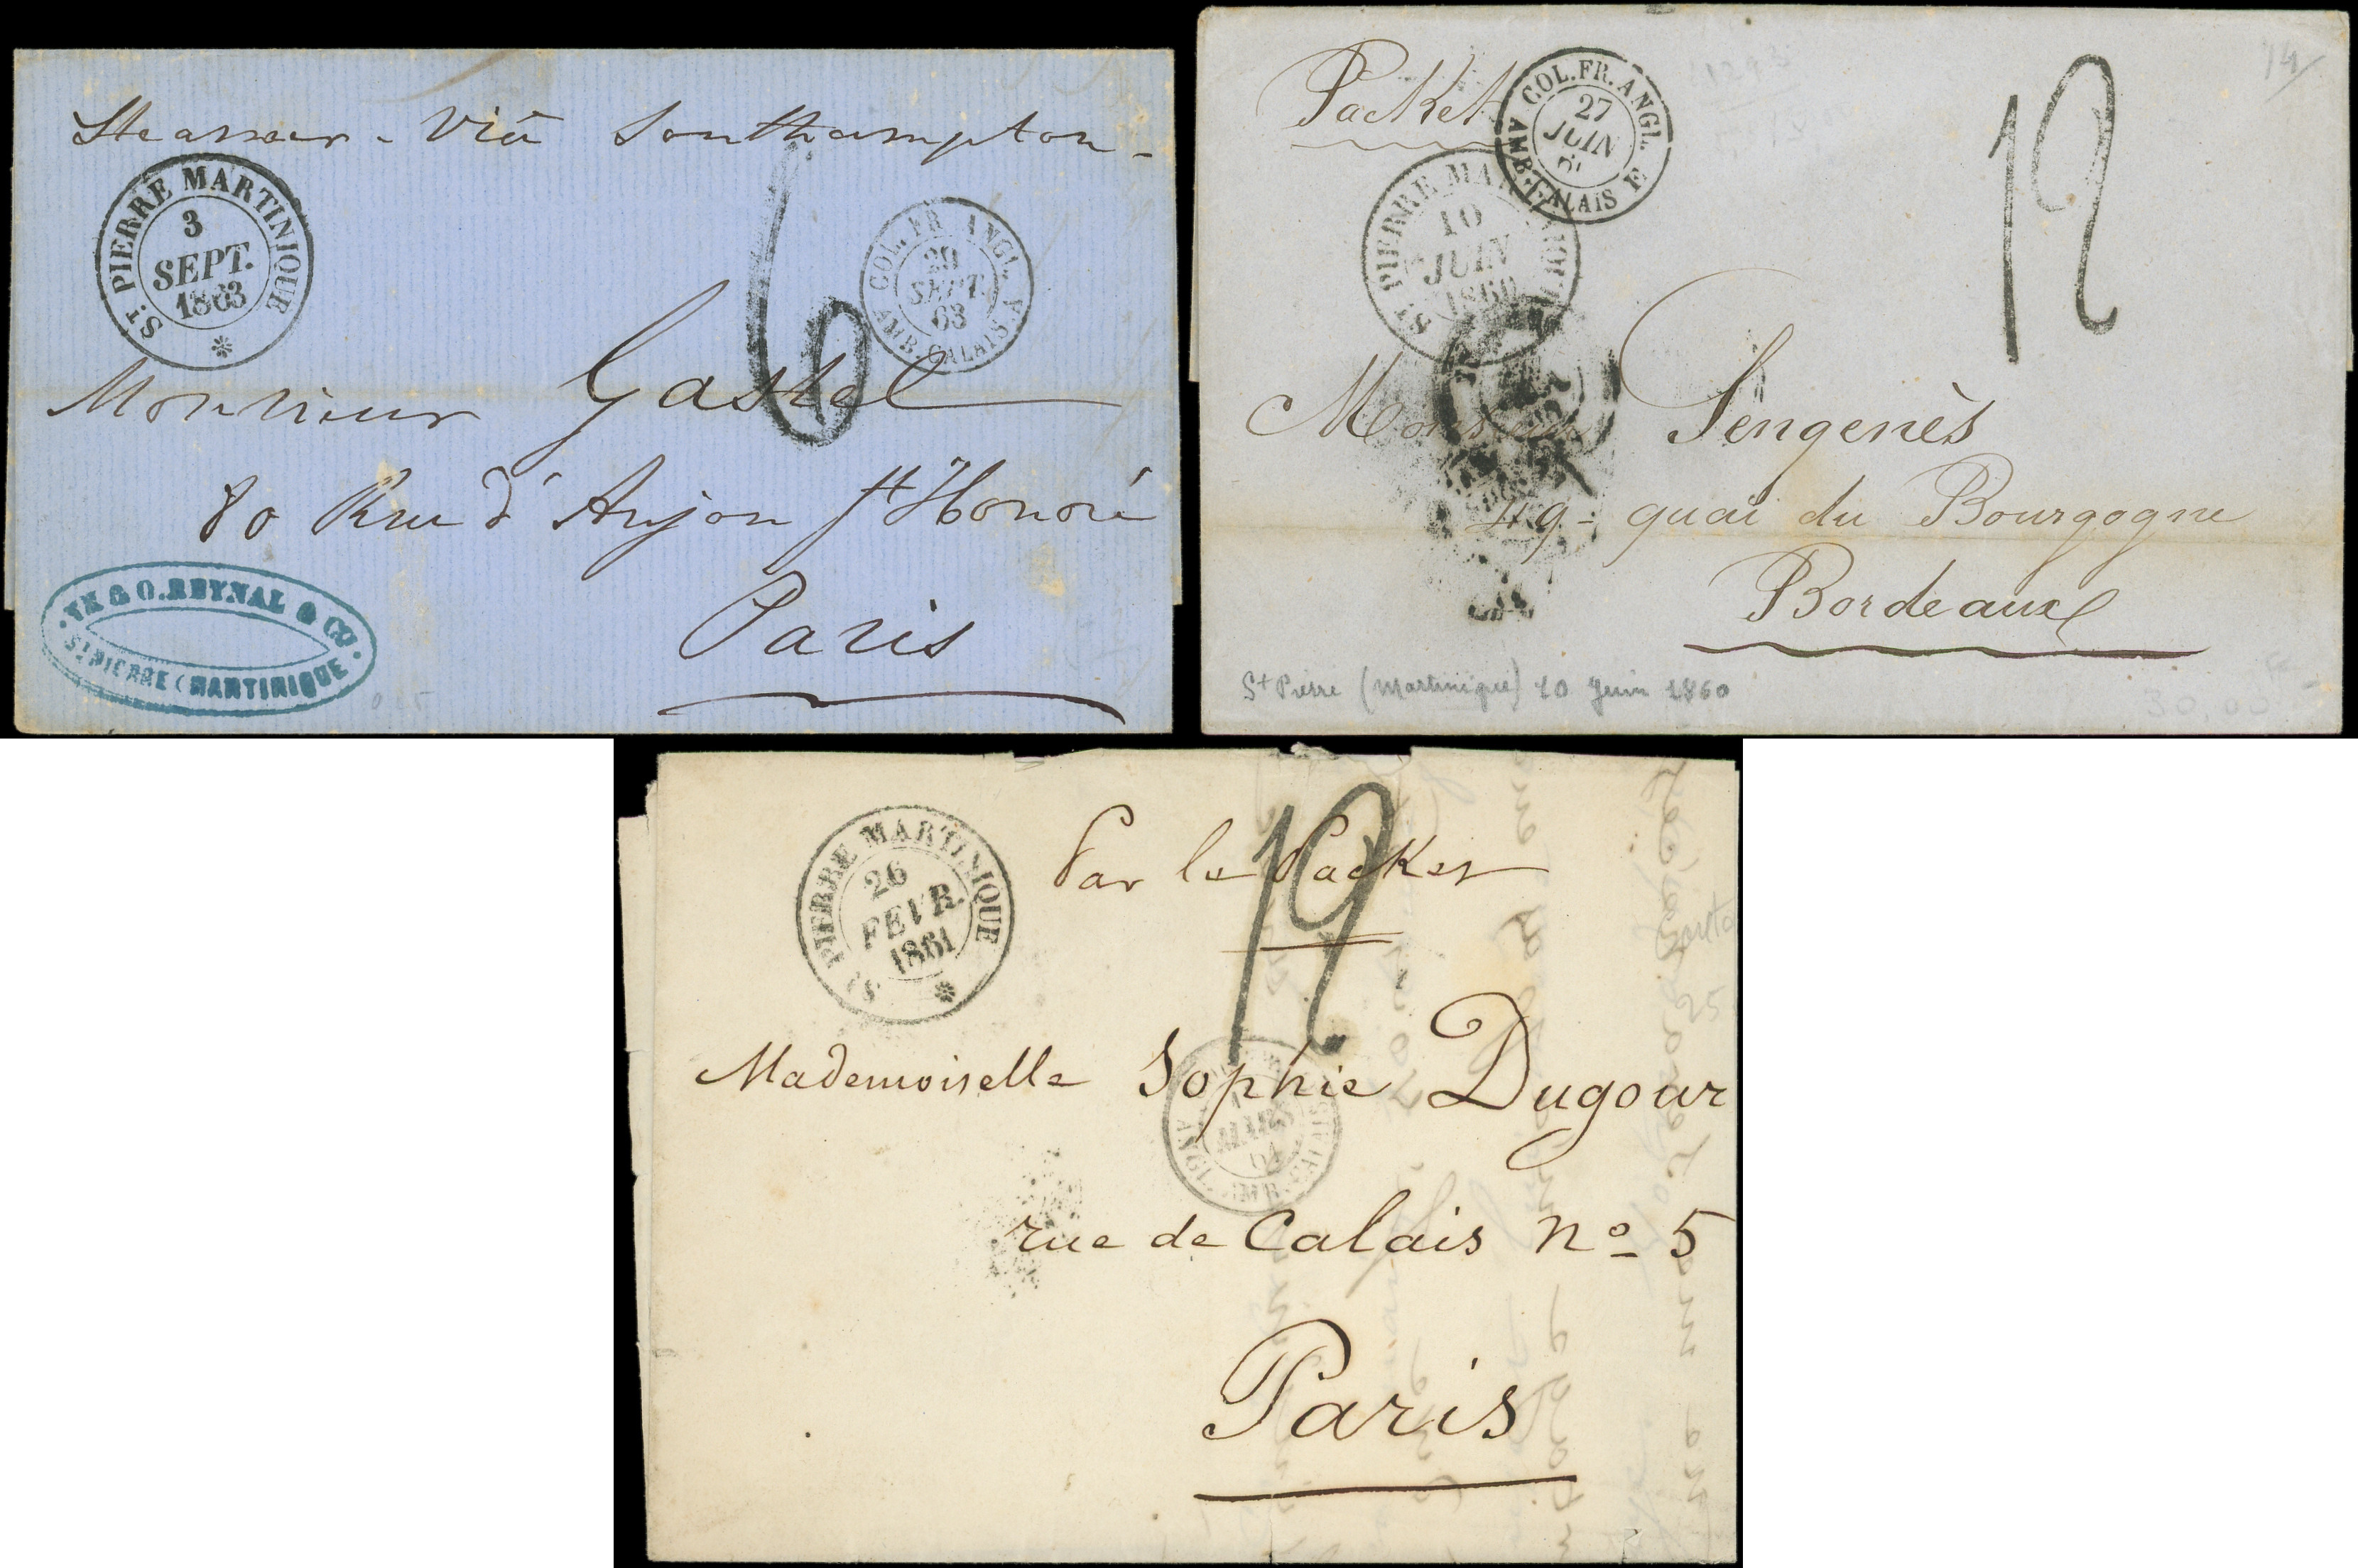 Steamer - Viâ Southampton -
ST. PIERRE MARTINIQUE
3
SEPT.
1863
6
COL. FR. ANGL.
29
SEPT.
63
AMB. CALAIS
Monsieur Gastel
80 Rue d'Anjou St Honoré
Paris
& O. REYNAL & CO.
ST PIERRE (MARTINIQUE)
Packet
COL. FR. ANGL.
27
JUIN
AMB. CALAIS E
12
ST. PIERRE
10
JUIN
1860
Monsieur Sengenès
49 - quai du Bourgogne
Bordeaux
St Pierre (Martinique) 10 Juin 1860
ST. PIERRE MARTINIQUE
26
FEVR.
1861
Par le Packet
12
Mademoiselle Sophie Dugour
MARS
61
rue de Calais No 5
Paris